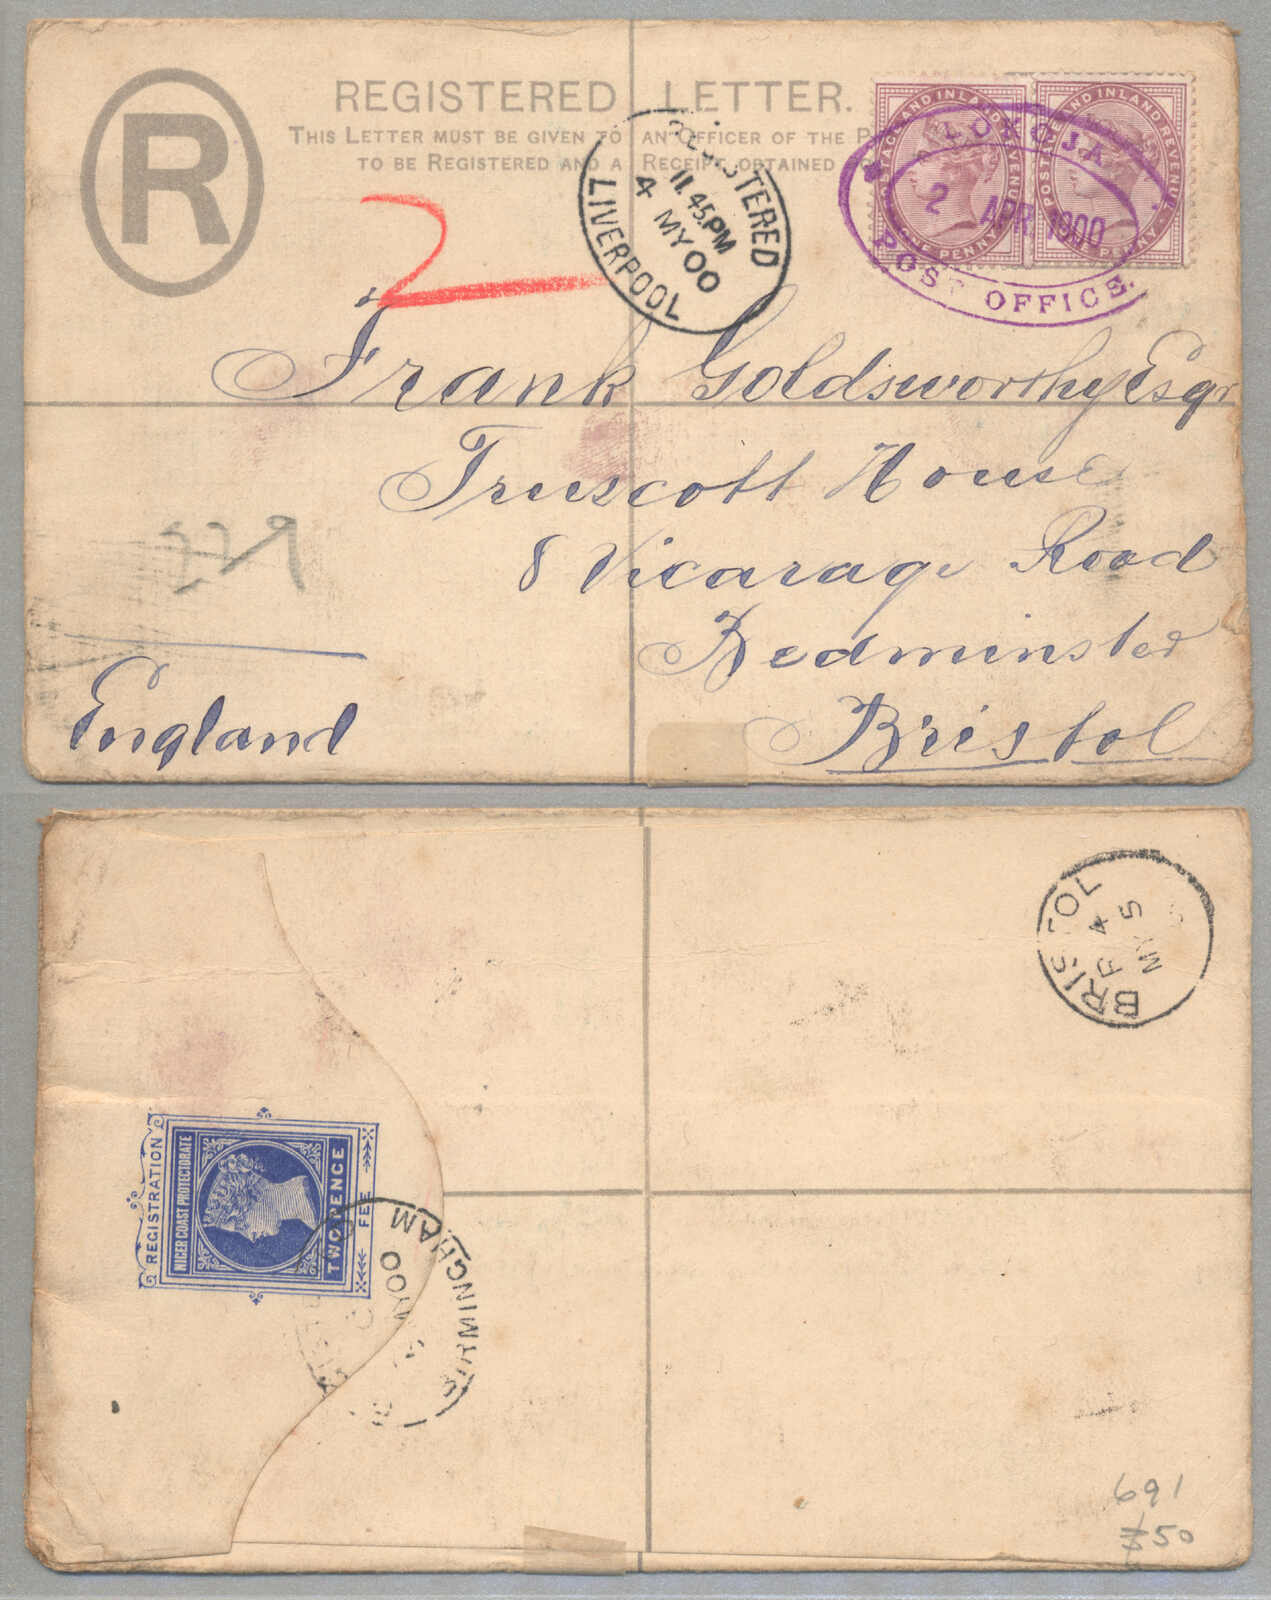 R
REGISTERED LETTER.
THIS LETTER MUST BE GIVEN TO AN OFFICER OF THE
TO BE REGISTERED AND A RECEIPT OBTAINED
POSTAGE AND INLAND REVENUE
ONE PENNY
POSTAGE AND INLAND REVENUE
ONE PENNY
LOKOJA
2 APR 1900
POST OFFICE.
REGISTERED
11.45PM
4 MY 00
LIVERPOOL
2
Frank Goldsworthy Esqr
Truscott House
8 Vicarage Road
Bedminster
Bristol
England
229
BRISTOL
F 4
MY 5
REGISTRATION
NIGER COAST PROTECTORATE
TWO PENCE
FEE
BIRMINGHAM
MY 00
691
50